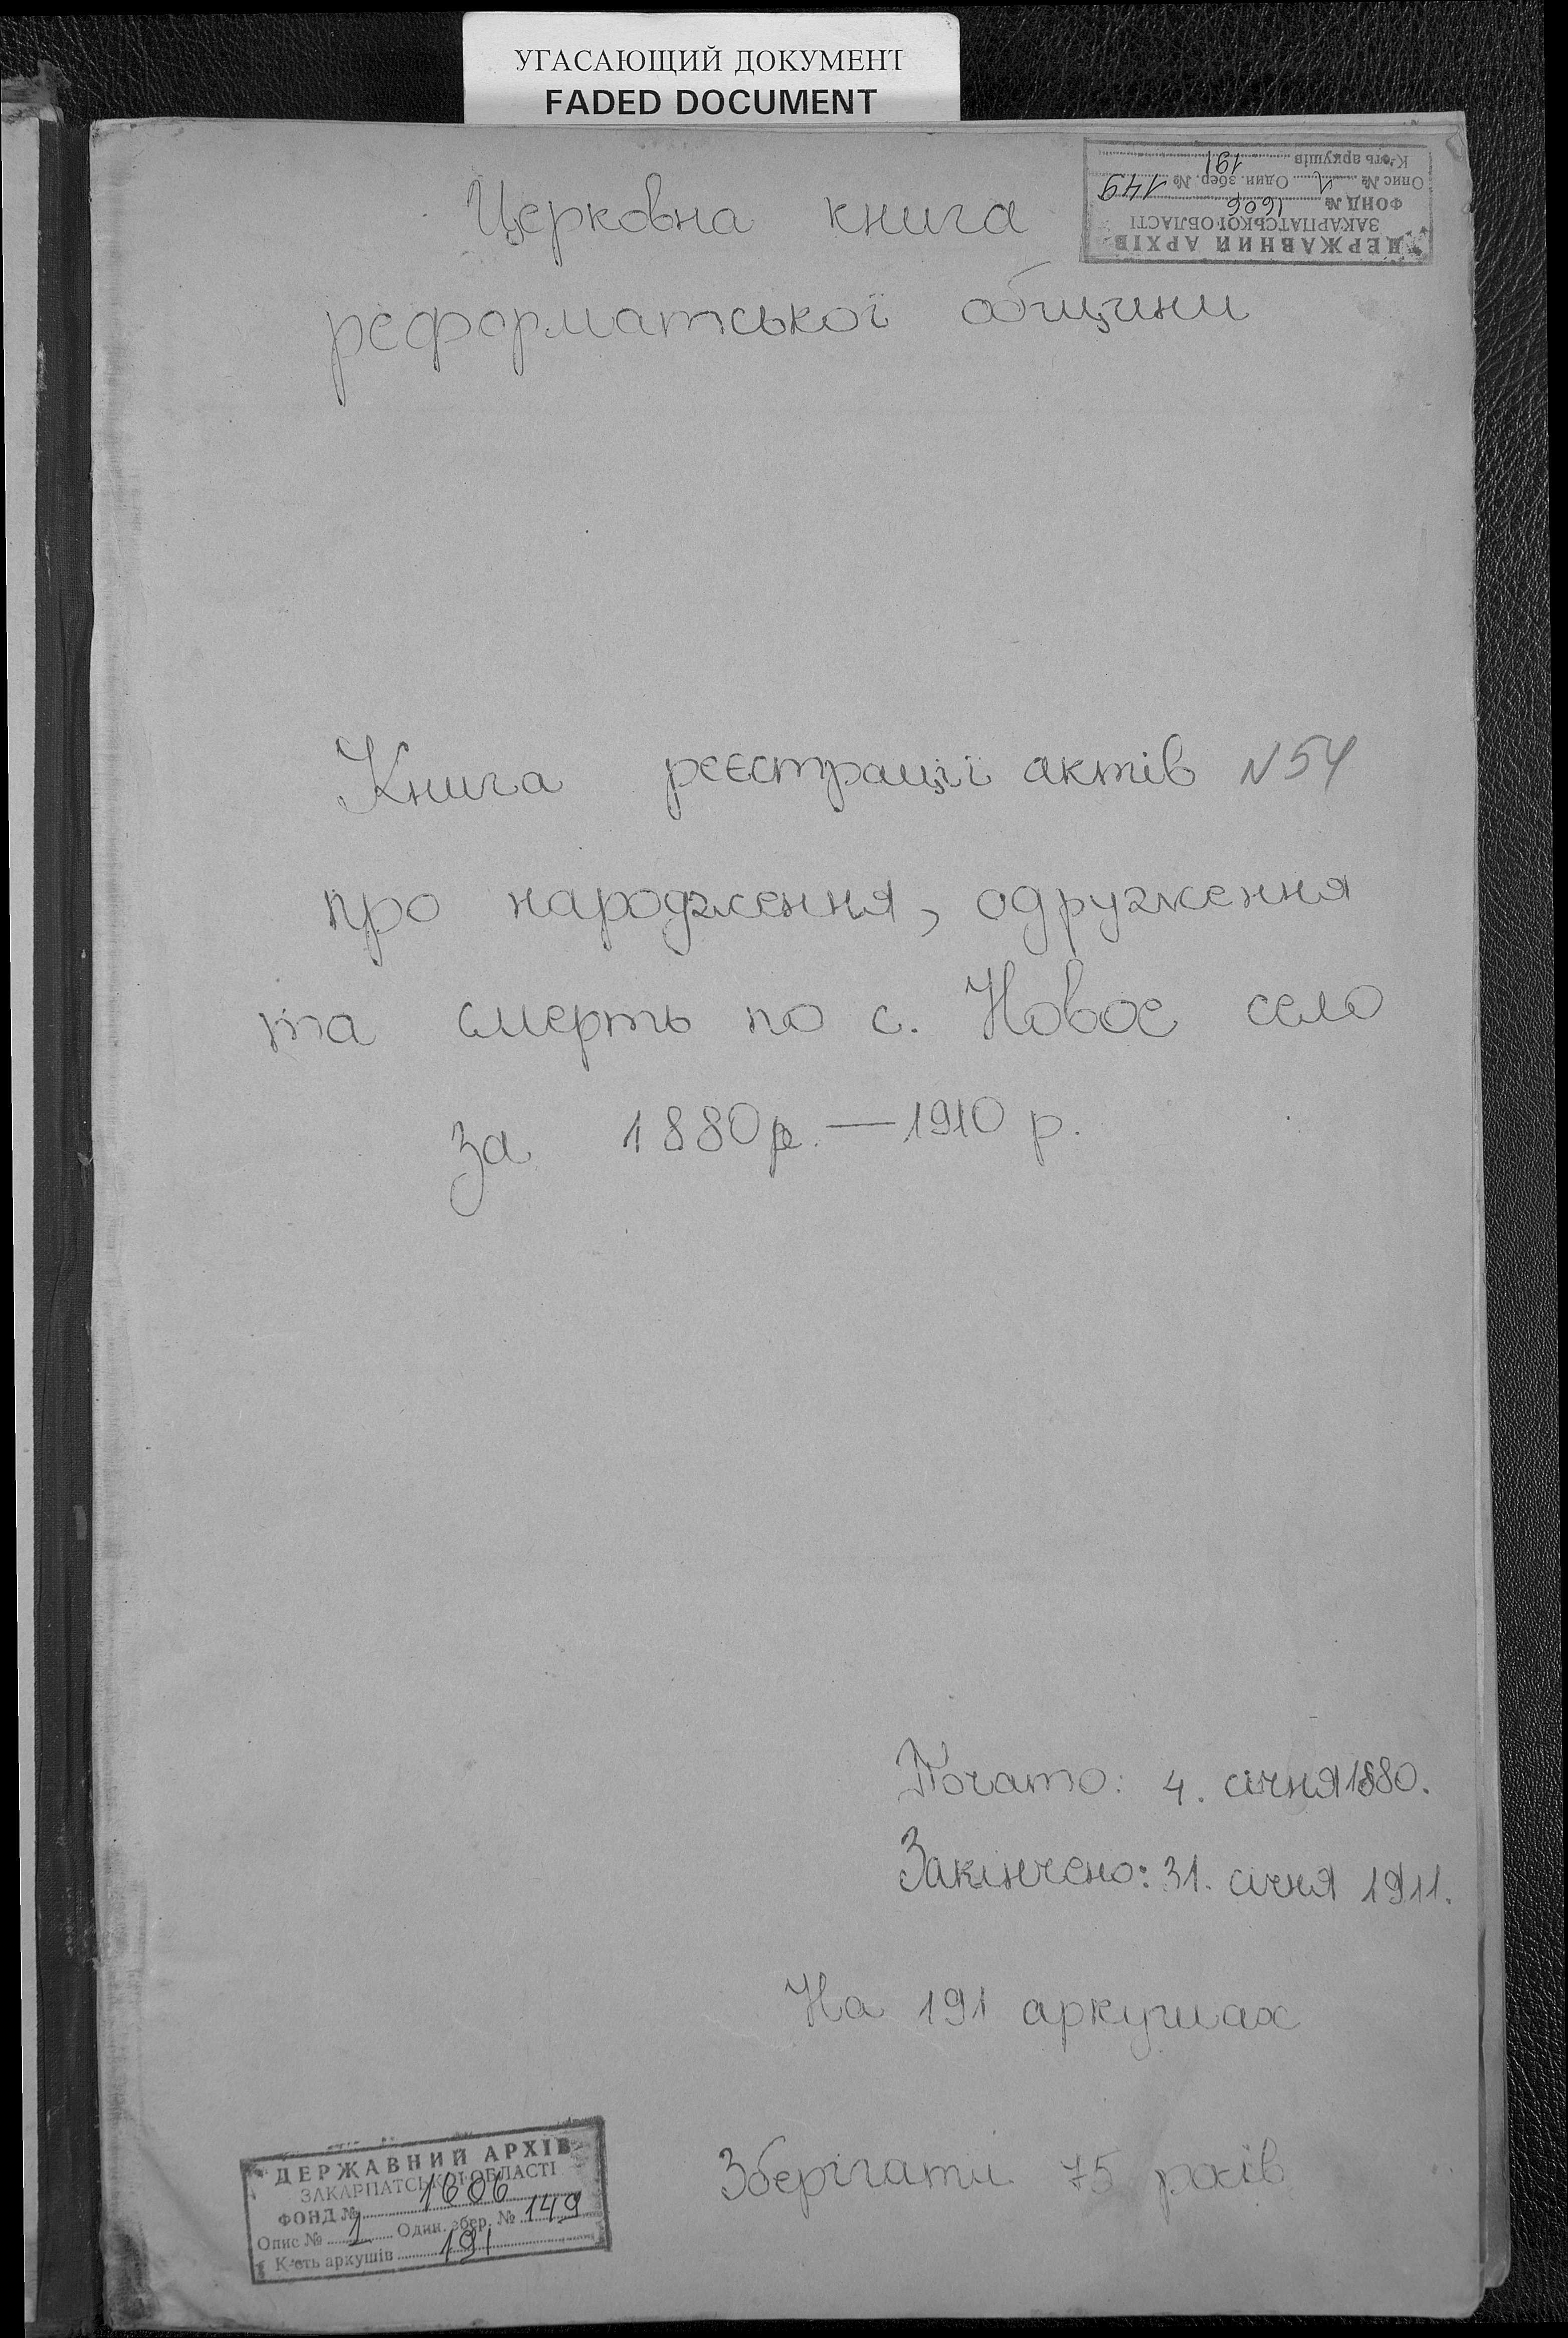 УГАСАЮЩИЙ ДОКУМЕНТ
FADED DOCUMENT
ДЕРЖАВНИЙ АРХІВ
ЗАКАРПАТСЬКОЇ ОБЛАСТІ
ФОНД № 1606
Опис № 1 Один. збер. № 149
К-сть аркушів 191
Церковна книга
реформатської общини
Книга реєстрації актів N 54
про народження, одруження
та смерть по с. Новое село
за 1880 р. — 1910 р.
Почато: 4. січня 1880.
Закінчено: 31. січня 1911.
На 191 аркушах
Зберігати 75 років
ДЕРЖАВНИЙ АРХІВ
ЗАКАРПАТСЬКОЇ ОБЛАСТІ
ФОНД № 1606
Опис № 1 Один. збер. № 149
К-сть аркушів 191